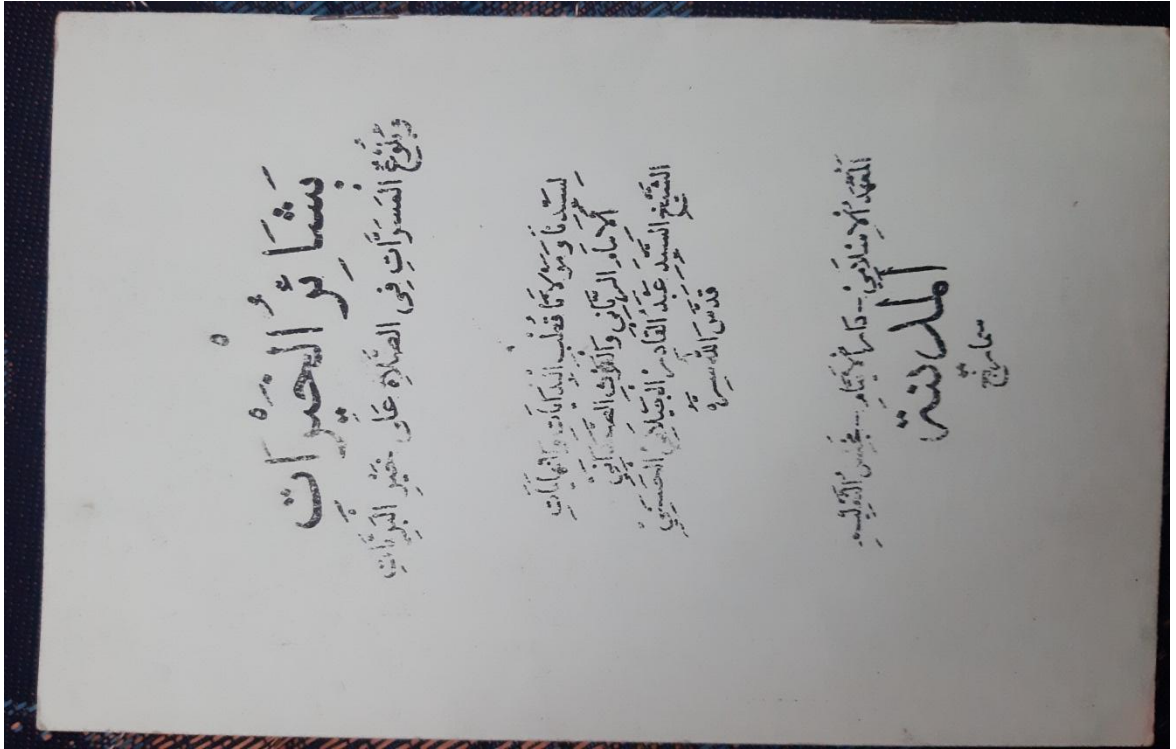 بَشَائِرُ الْخَيْرَاتِ
وَبُلُوْغُ الْمَسَرَّاتِ فِى الصَّلَاةِ عَلَى خَيْرِ الْبَرِيَّاتِ
لسيّدنا ومولانا قطب البدايات والنهايات
الإمام الربّاني والغوث الصمداني
الشيخ السيد عبد القادر الجيلاني الحسني
قدّس الله سره
المعهد الإسلامي - دار الأيتام - مجلس
المدينة
سمارنج